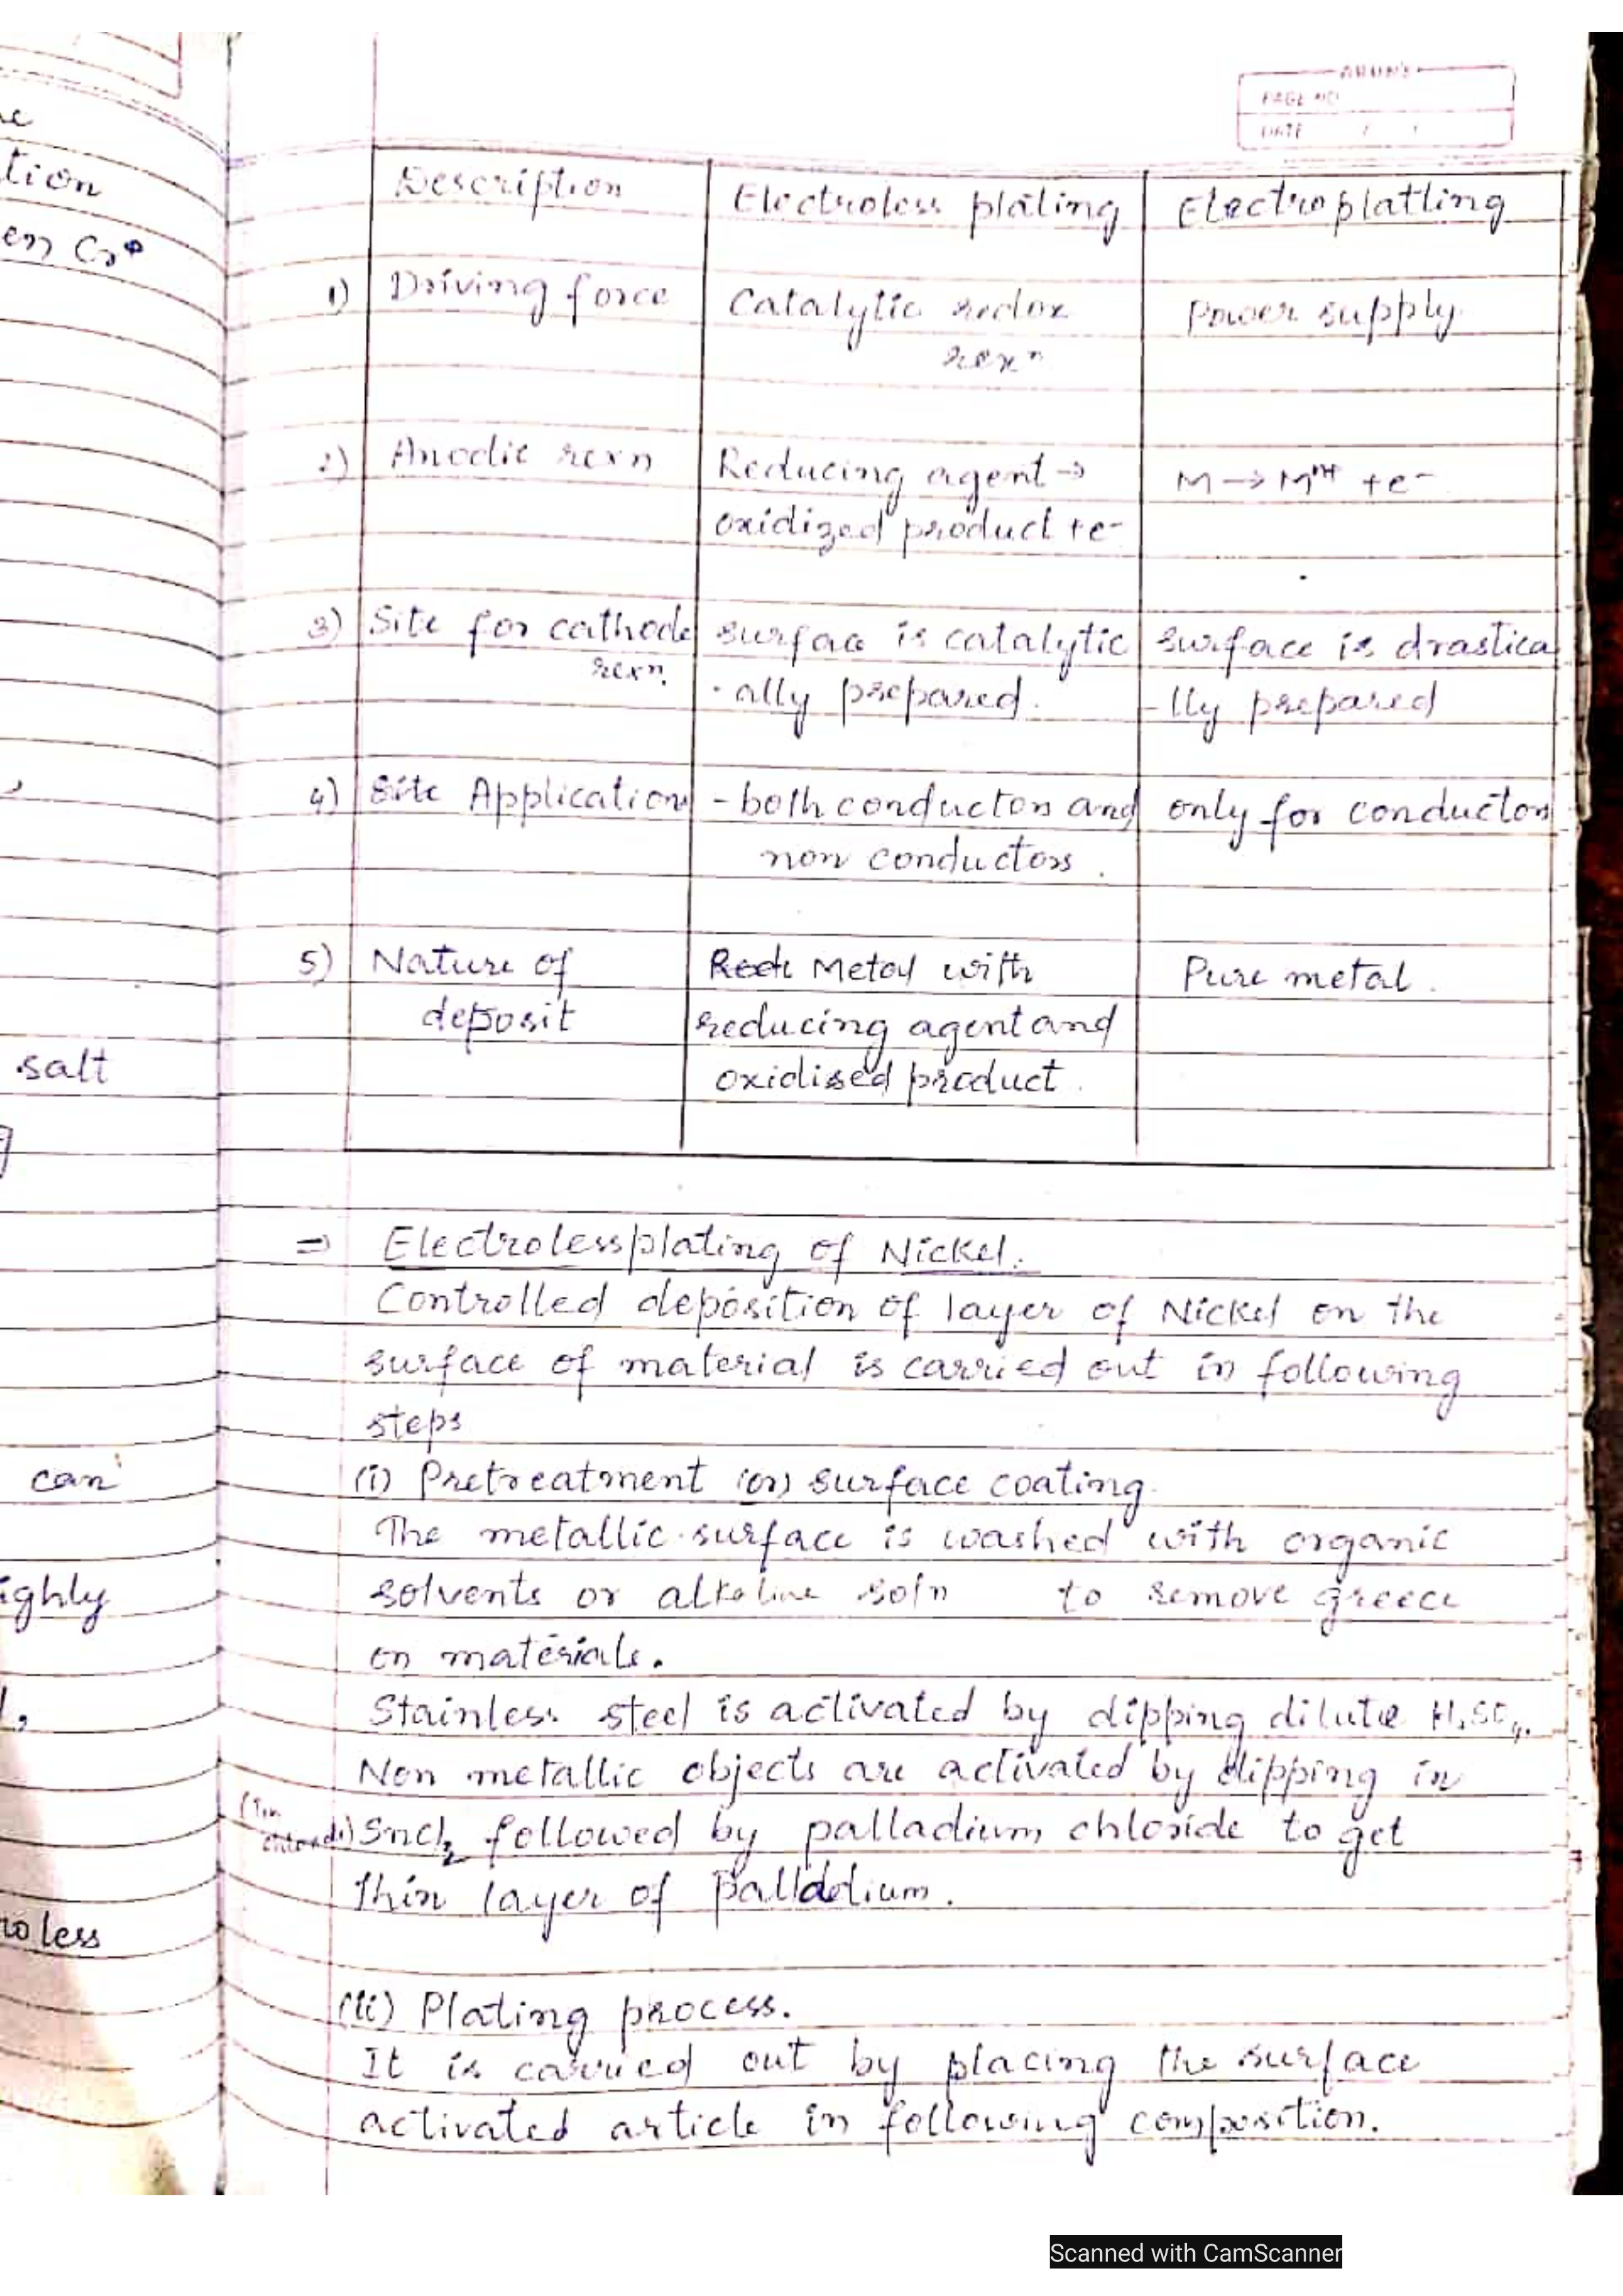 PAGE NO
DATE / /
Description Electroless plating Electroplatting
1) Driving force Catalytic redox Power supply.
rexn
2) Anodic rexn Reducing agent → M → Mn+ + e-
oxidized product + e-
3) Site for cathode surface is catalytic surface is drastica
rexn. - ally prepared. - lly prepared
4) Site Application - both conductors and only for conductors
non conductors.
5) Nature of Metal with Pure metal.
deposit reducing agent and
oxidised product.
⇒ Electrolessplating of Nickel.
Controlled deposition of layer of Nickel on the
surface of material is carried out in following
steps
(i) Pretreatment (or) surface coating.
The metallic surface is washed with organic
solvents or alkaline soln to remove greece
on materials.
Stainless steel is activated by dipping dilute H2SO4.
Non metallic objects are activated by dipping in
(Tin
chloride) Sncl2 followed by palladium chloride to get
thin layer of palladium.
(ii) Plating process.
It is carried out by placing the surface
activated article in following composition.
tion
salt
can
ighly
roless
Scanned with CamScanner